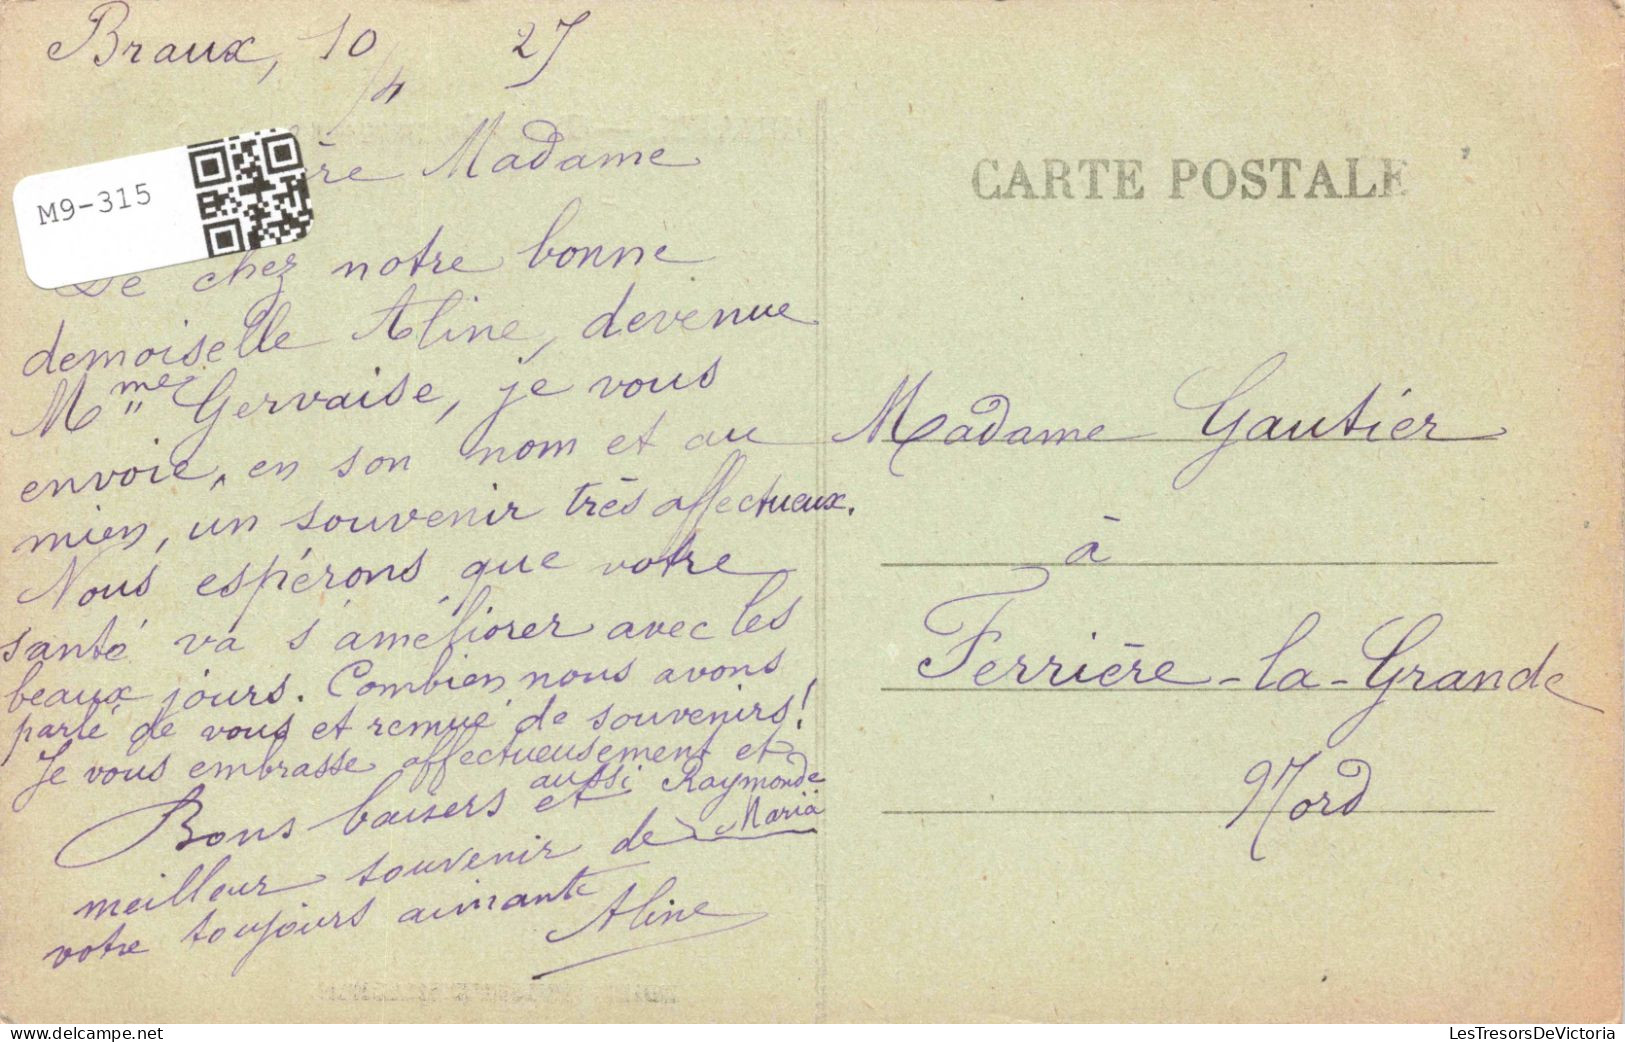 Braux, 10/4 27
M9-315
ère Madame
De chez notre bonne
demoiselle Aline, devenue
Mme Gervaise, je vous
envoie, en son nom et au
mien, un souvenir très affectueux.
Nous espérons que votre
santé va s'améliorer avec les
beaux jours. Combien nous avons
parlé de vous et remué de souvenirs!
Je vous embrasse affectueusement et
aussi Raymonde
Maria
Bons baisers et
meilleur souvenir de
votre toujours aimante
Aline
CARTE POSTALE
Madame Gautier
à
Ferrière-la-Grande
Nord
LesTresorsDeVictoria